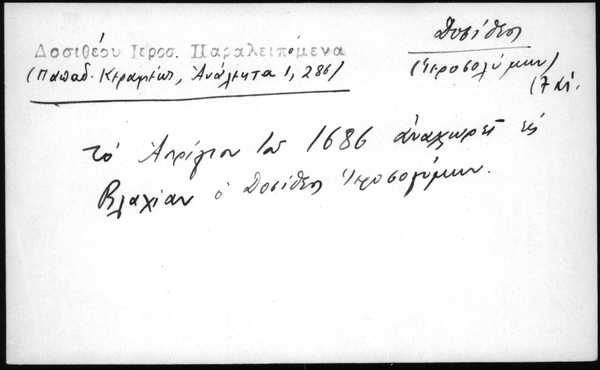 Δοσιθέου Ιεροσ. Παραλειπόμενα
(Παπαδ. Κεραμέως, Ανάλεκτα 1, 286)
Δοσίθεος
(Ιεροσολύμων)
(7 αἰ.
τὸ Ἀπρίλιον τοῦ 1686 ἀναχωρεῖ εἰς
Βλαχίαν ὁ Δοσίθεος Ἱεροσολύμων.